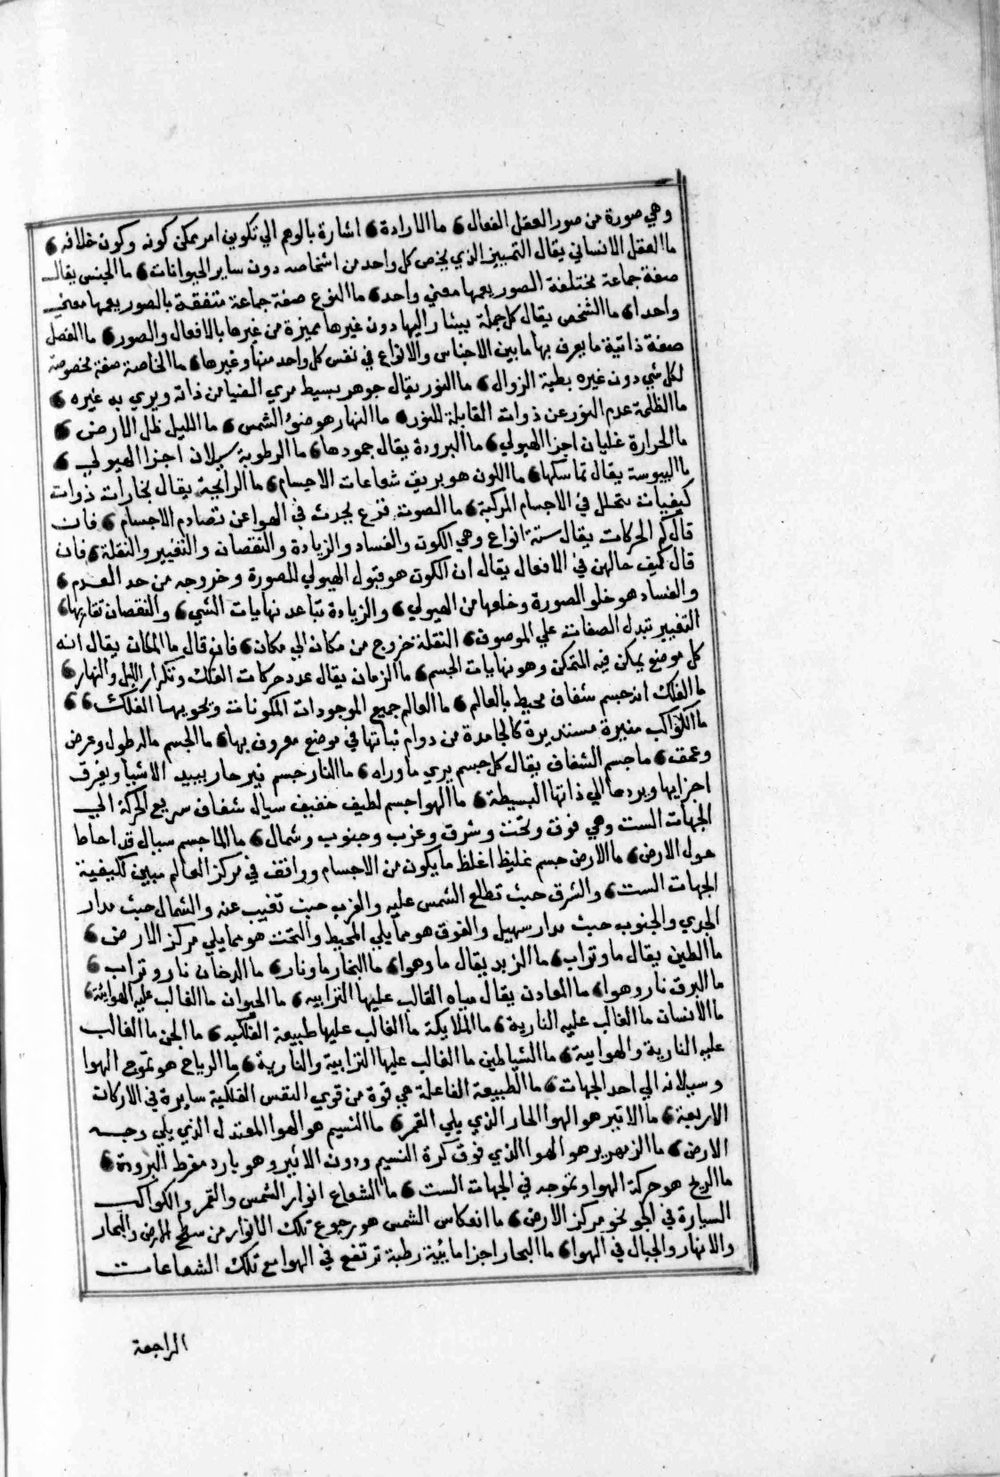 وهي صورة من صور العقل الفعال ⁶ ما الارادة ⁶ اشارة بالوهم الي تكوين امر يمكن كونه وكون خلافه ⁶
ما العقل الانساني يقال التمييز الذي يخص كل واحد من اشخاصه دون ساير الحيوانات ⁶ ما الجنس يقال
صفة جماعة مختلفة الصور يعمها معني واحد ⁶ ما النوع صفة جماعة متفقة بالصور يعمها معني
واحد ⁶ ما الشخص يقال كل جملة يشار اليها دون غيرها مميزة من غيرها بالافعال والصور ⁶ ما الفصل
صفة ذاتية ما يعرف بها ما بين الاجناس والانواع في نفس كل واحد منها وغيرها ⁶ ما الخاصة صفة مخصوصة
لكل شي دون غيره بطية الزوال ⁶ ما النور يقال جوهر بسيط مري الضيا من ذاته ويري به غيره ⁶
ما الظلمة عدم النور عن ذوات القابلة للنور ⁶ ما النهار هو ضوء الشمس ⁶ ما الليل ظل الارض ⁶
ما الحرارة غليان اجزا الهيولي ⁶ ما البرودة يقال جمودها ⁶ ما الرطوبة سيلان اجزا الهيولي ⁶
ما اليبوسة يقال تماسكها ⁶ ما اللون هو بريق شعاعات الاجسام ⁶ ما الرايحة يقال بخارات ذوات
كيفيات تتحلل في الاجسام المركبة ⁶ ما الصوت قرع يحدث في الهوا عن تصادم الاجسام ⁶ فان
قال كم الحركات يقال ستة انواع وهي الكون والفساد والزيادة والنقصان والتغيير والنقلة ⁶ فان
قال كيف حالهن في الافعال يقال ان الكون هو قبول الهيولي للصورة وخروجه من حد العدم ⁶
والفساد هو خلو الصورة وخلعها من الهيولي ⁶ والزيادة تباعد نهايات الشي ⁶ والنقصان تقاربها ⁶
التغيير تبدل الصفات علي الموصوف ⁶ النقلة خروج من مكان الي مكان ⁶ فان قال ما المكان يقال انه
كل موضع يمكن فيه المتمكن وهو نهايات الجسم ⁶ ما الزمان يقال عدد حركات الفلك وتكرار الليل والنهار ⁶
ما الفلك انه جسم شفاف محيط بالعالم ⁶ ما العالم جميع الموجودات المكونات ويحويها الفلك ⁶ ⁶
ما الكواكب منيرة مستديرة كالجامدة من دوام ثباتها في موضع معروف بها ⁶ ما الجسم ماله طول وعرض
وعمق ⁶ ما جسم الشفاف يقال كل جسم يري ما وراه ⁶ ما النار جسم نير حار يبيد الاشيا ويفرق
اجزايها ويردها الي ذاتها البسيطة ⁶ ما الهوا جسم لطيف خفيف سيال شفاف سريع الحركة الي
الجهات الست وهي فوق وتحت وشرق وغرب وجنوب وشمال ⁶ ما الما جسم سيال قد احاط
حول الارض ⁶ ما الارض جسم غليظ اغلظ ما يكون من الاجسام وواقف في مركز العالم مبين لكيفية
الجهات الست ⁶ والشرق حيث تطلع الشمس عليه والغرب حيث تغيب عنه والشمال حيث مدار
الجدي والجنوب حيث مدار سهيل والفوق هو مما يلي المحيط والتحت هو مما يلي مركز الارض ⁶
ما الطين يقال ما وتراب ⁶ ما الزبد يقال ما وهوا ⁶ ما البخار ما ونار ⁶ ما الدخان نار وتراب ⁶
ما البرق نار وهوا ⁶ ما المعادن يقال مياه الغالب عليها الترابيه ⁶ ما الحيوان ما الغالب عليه الهوائية ⁶
ما الانسان ما الغالب عليه النارية ⁶ ما الملايكة ما الغالب عليها طبيعة الفلكيه ⁶ ما الجن ما الغالب
عليه النارية والهوايية ⁶ ما الشياطين ما الغالب عليها الترابية والنارية ⁶ ما الرياح هو تموج الهوا
وسيلانه الي احد الجهات ⁶ ما الطبيعة الفاعلة هي قوة من قوي النفس الفلكية سايرة في الاركان
الاربعة ⁶ ما الاثير هو الهوا الحار الذي يلي القمر ⁶ ما النسيم هو الهوا المعتدل الذي يلي وجه
الارض ⁶ ما الزمهرير هو الهوا الذي فوق كرة النسيم ودون الاثير وهو بارد مفرط البرودة ⁶
ما الريح هو حركة الهوا وتموجه في الجهات الست ⁶ ما الشعاع انوار الشمس والقمر والكواكب
السيارة في الجو نحو مركز الارض ⁶ ما انعكاس الشمس هو رجوع تلك الانوار من سطح الارض والبحار
والانهار والجبال في الهوا ⁶ ما البخار اجزا مايية رطبة ترتفع في الهوا مع تلك الشعاعات
الراجعة